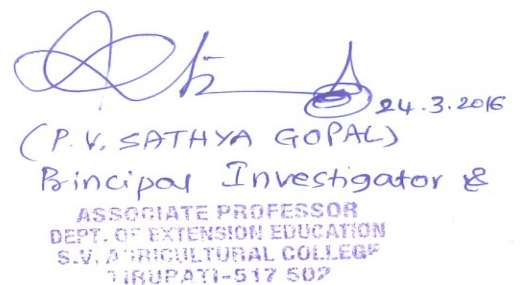 24.3.2016
(P.V. SATHYA GOPAL)
Principal Investigator &
ASSOCIATE PROFESSOR
DEPT. OF EXTENSION EDUCATION
S.V. AGRICULTURAL COLLEGE
TIRUPATI-517 502